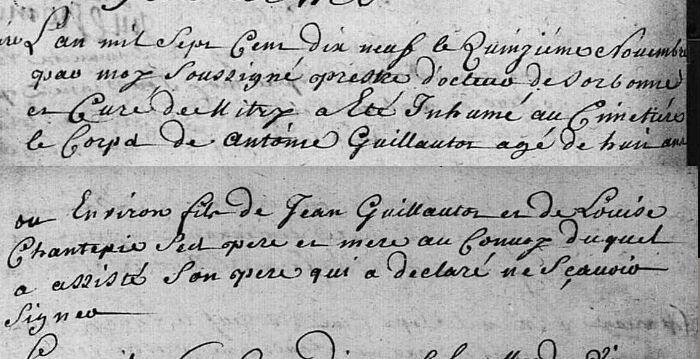 L'an mil sept cent dix neuf le Quinziéme Novembre
par moy soussigné prestre docteur de sorbonne
et Curé de Mitry a Eté Inhumé au Cimetiére
le Corps de antoine Guillautot agé de huit ans
ou Environ fils de Jean Guillautot et de Louise
Chantepie ses pere et mere au Convoy duquel
a assisté son pere qui a declaré ne sçavoir
signer